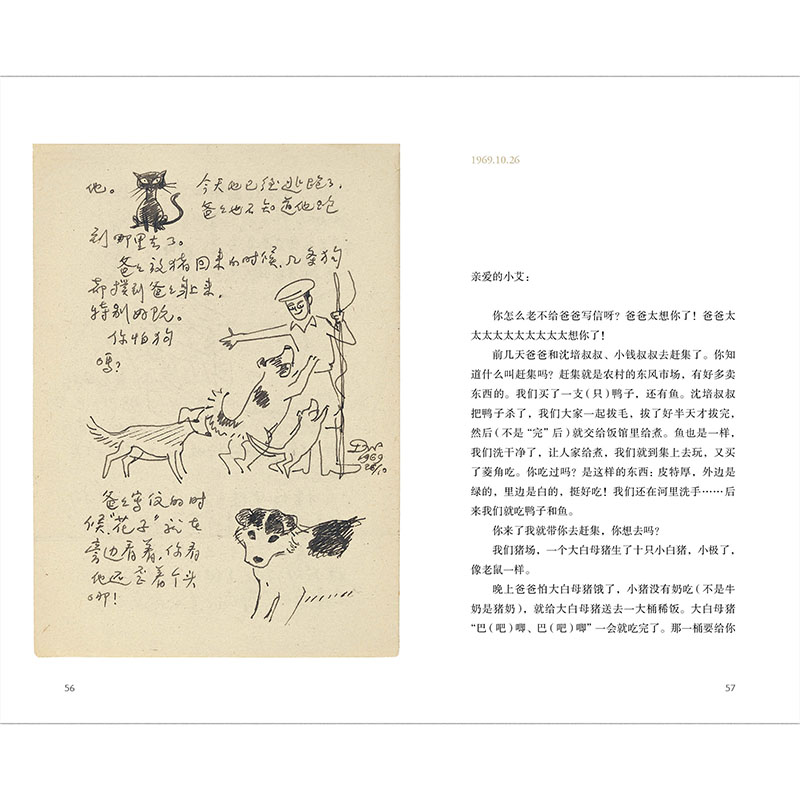 他。
今天他已经逃跑了,
爸爸也不知道他跑
到哪里去了。
爸爸放猪回来的时候,几条狗
都扑到爸爸身上来,
特别好玩。
你怕狗
吗?
1969
26/10
爸爸写信的时
候,"花子"就在
旁边看着,你看
他还歪着个头
哪!
56
1969.10.26
亲爱的小艾:
你怎么老不给爸爸写信呀?爸爸太想你了!爸爸太
太太太太太太太太太太想你了!
前几天爸爸和沈培叔叔、小钱叔叔去赶集了。你知
道什么叫赶集吗?赶集就是农村的东风市场,有好多卖
东西的。我们买了一支(只)鸭子,还有鱼。沈培叔叔
把鸭子杀了,我们大家一起拔毛,拔了好半天才拔完,
然后(不是“完”后)就交给饭馆里给煮。鱼也是一样,
我们洗干净了,让人家给煮,我们就到集上去玩,又买
了菱角吃。你吃过吗?是这样的东西:皮特厚,外边是
绿的,里边是白的,挺好吃!我们还在河里洗手……后
来我们就吃鸭子和鱼。
你来了我就带你去赶集,你想去吗?
我们猪场,一个大白母猪生了十只小白猪,小极了,
像老鼠一样。
晚上爸爸怕大白母猪饿了,小猪没有奶吃(不是牛
奶是猪奶),就给大白母猪送去一大桶稀饭。大白母猪
“巴(吧)唧、巴(吧)唧”一会就吃完了。那一桶要给你
57